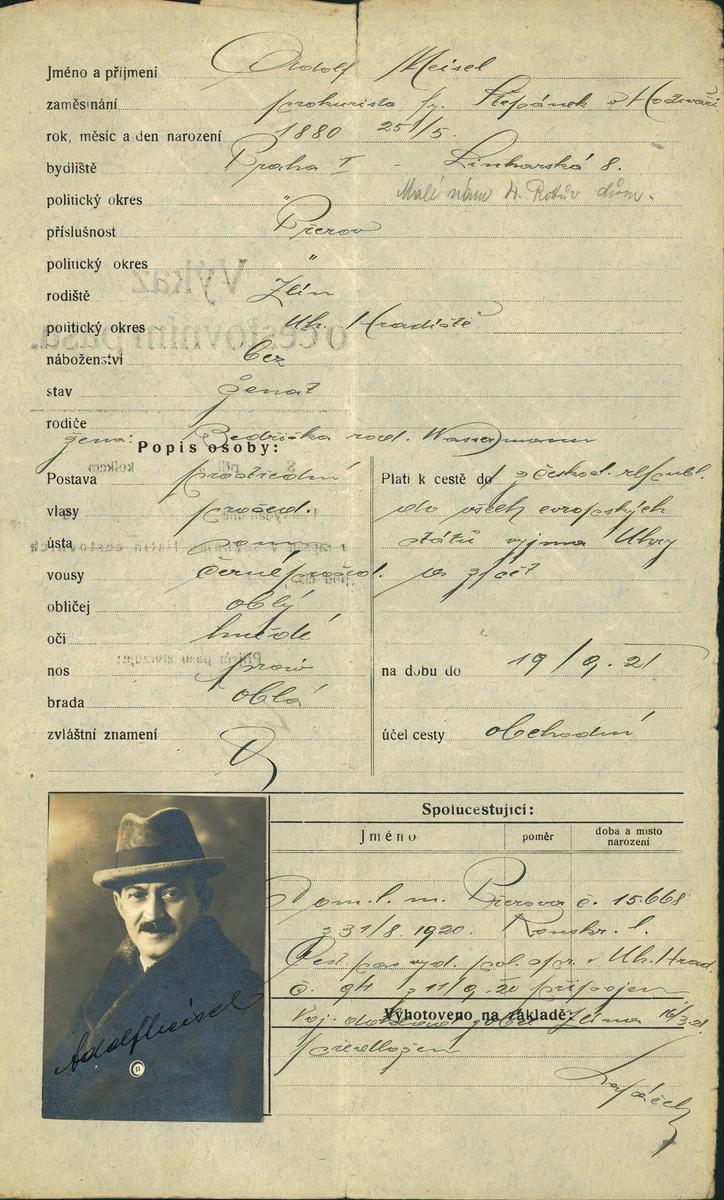 Jméno a příjmení Adolf Meisel
zaměstnání prokurista fy. Štěpánek v Hostivaři
rok, měsíc a den narození 1880 25/5.
bydliště Praha I - Linhartská 8.
Malé nám 4. Rottův dům.
politický okres "
příslušnost Přerov
politický okres "
rodiště Zlín
politický okres Uh. Hradiště
náboženství bez
stav ženat
rodiče
žena: Bedřiška rod. Wassermann
Popis osoby:
Postava prostřední
vlasy prošed.
ústa
vousy černé prošed.
obličej oblý
oči hnědé
nos
brada oblá
zvláštní znamení
Platí k cestě do z českosl. republ.
do všech evropských
států vyjma Uhry
a zpět
na dobu do 19/9.21
účel cesty obchodní
Spolucestující:
Jméno poměr doba a místo narození
Dom. l. m. Přerova č. 15.668
z 31/8. 1920. Konskr. l.
Cest. pas vyd. pol. spr. v Uh. Hrad.
č. 94 z 11/9.20 připojen
Vyhotoveno na základě:
Voj. Zlína 16/3.21
předložen
Adolf Meisel
Výkaz
o cestovním pasu.
kolkem
Příjem pasu stvrzuji: